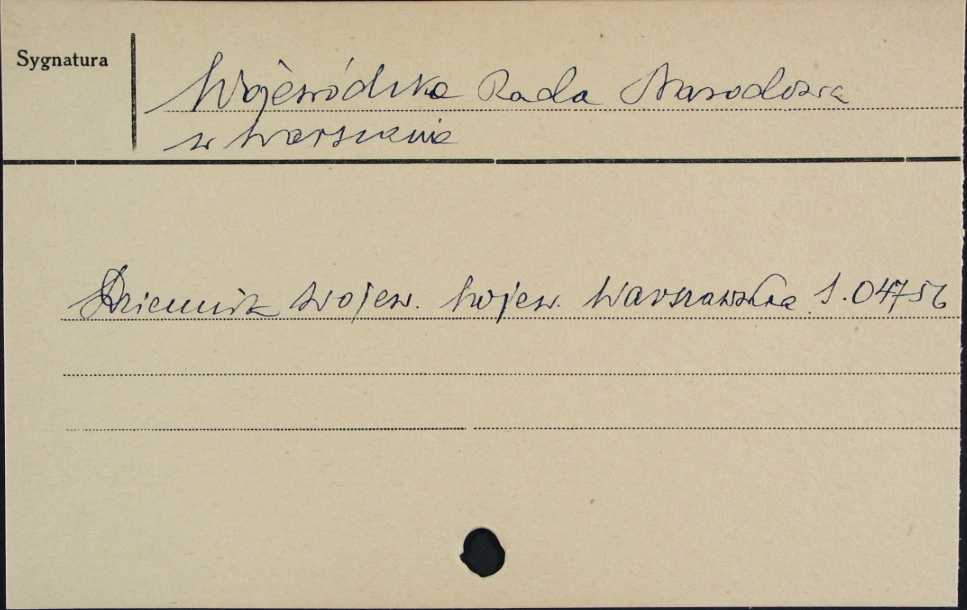 Sygnatura
Wojewódzka Rada Narodowa
w Warszawie
Dziennik Wojew. Wojew. Warszawska S.04756